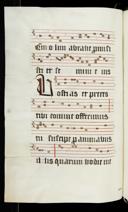 Eni olim abrahe promisi
sti et se mini e ius
Hostias et preces
tibi domine offerimus
tu suscipe pro animabus
illis quarum hodie me